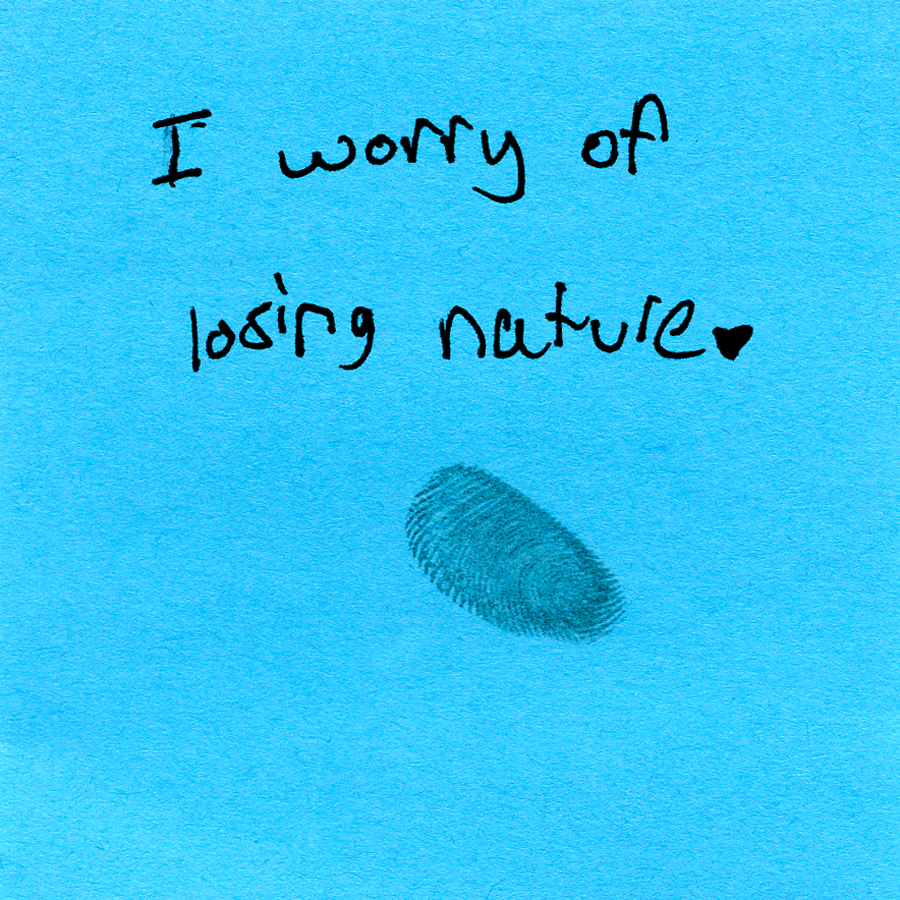 I worry of
losing nature♥